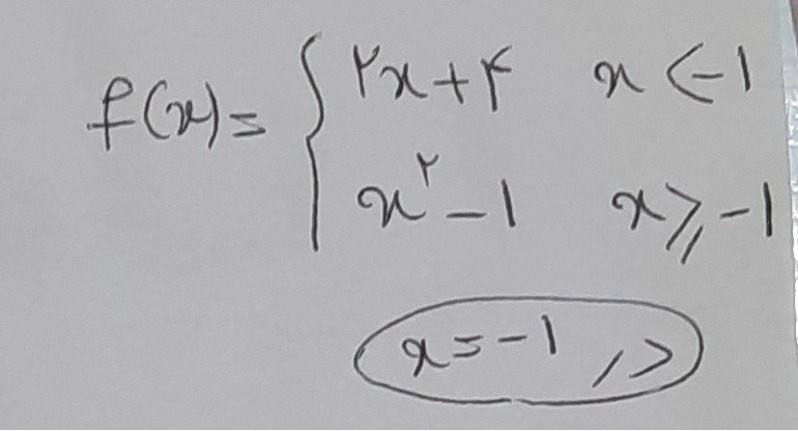 f(x) = { ۲x + ۴ x < -1
x^۲ - 1 x ⩾ -1
در x = -1